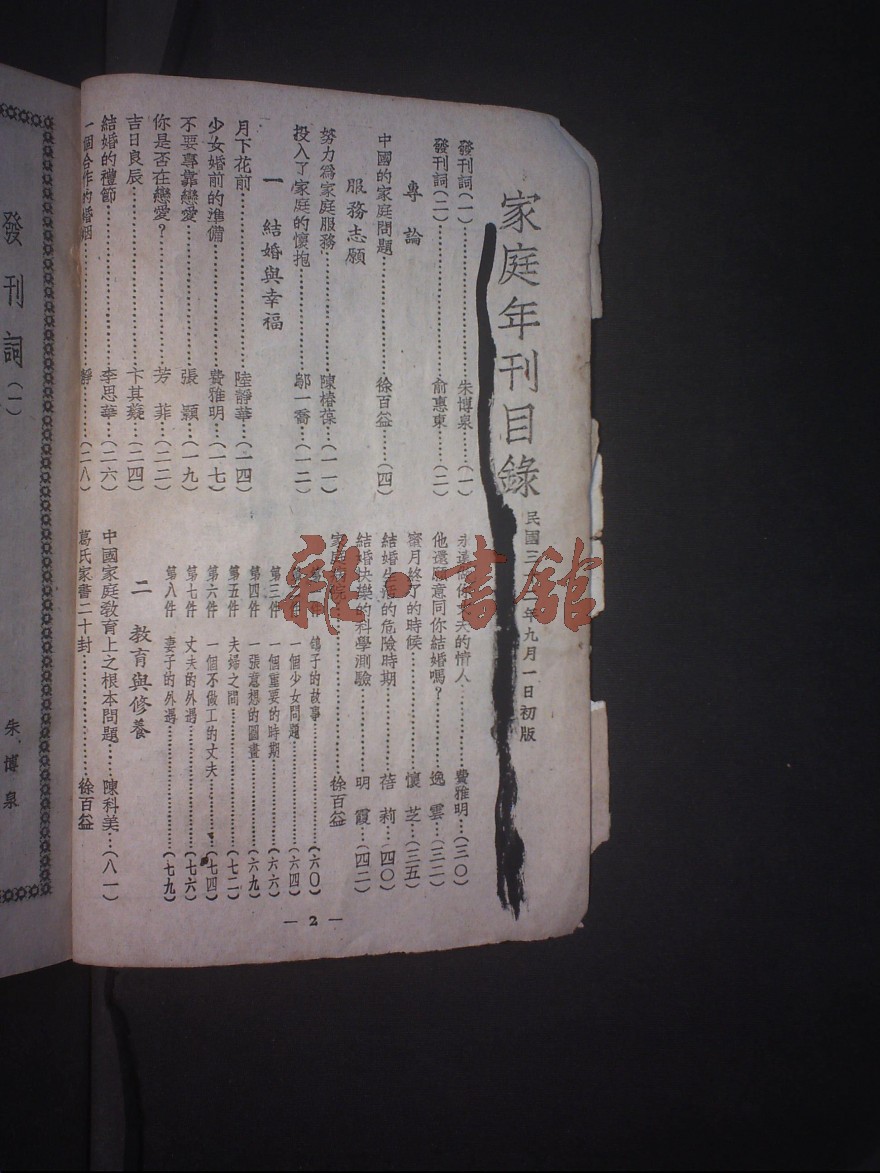 家庭年刊目錄
民國三 年九月一日初版
發刊詞(一)……朱博泉…(一)
發刊詞(二)……俞惠東…(二)
專論
中國的家庭問題……徐百益……(四)
服務志願
努力爲家庭服務……陳椿葆…(一一)
投入了家庭的懷抱……鄔一喬…(一二)
一 結婚與幸福
月下花前……陸靜華…(一四)
少女婚前的準備……費雅明…(一七)
不要專靠戀愛……張 穎…(一九)
你是否在戀愛?……芳 菲…(二二)
吉日良辰……卞其薿…(二四)
結婚的禮節……李思華…(二六)
一個合作的婚姻……靜……(二八)
永遠 你丈夫的情人……費雅明…(三〇)
他還願意同你結婚嗎?……逸 雲…(三二)
蜜月終了的時候……懷 芝…(三五)
結婚生活的危險時期……蓓 莉…(四〇)
結婚快樂的科學測驗……明 霞…(四二)
家庭 院……徐百益
第一件 鴿子的故事……(六〇)
第二件 一個少女問題……(六四)
第三件 一個重要的時期……(六六)
第四件 一張意想的圖畫……(六九)
第五件 夫婦之間……(七二)
第六件 一個不做工的丈夫……(七四)
第七件 丈夫的外遇……(七六)
第八件 妻子的外遇……(七九)
二 教育與修養
中國家庭敎育上之根本問題……陳科美…(八一)
葛氏家書二十封……徐百益
— 2 —
發刊詞(一)
朱博泉
雜·書館